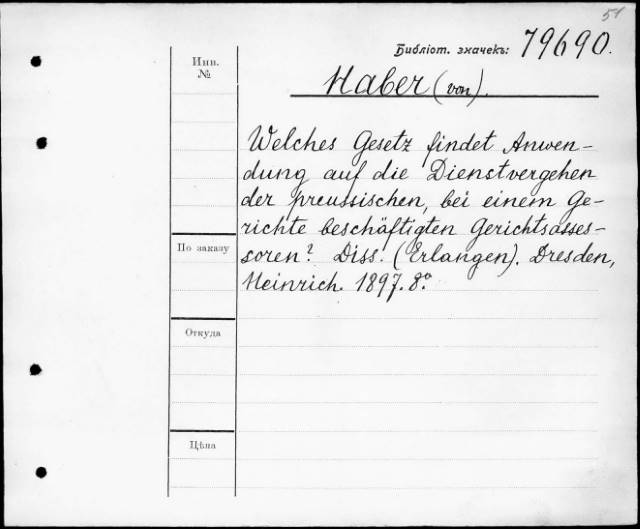 51
Библіот. значекъ: 79690.
Инв.
№
Haber (von).
Welches Gesetz findet Anwen-
dung auf die Dienstvergehen
der preussischen, bei einem Ge-
richte beschäftigten Gerichtsasses-
soren? Diss. (Erlangen). Dresden,
Heinrich. 1897. 8º
По заказу
Откуда
Цѣна